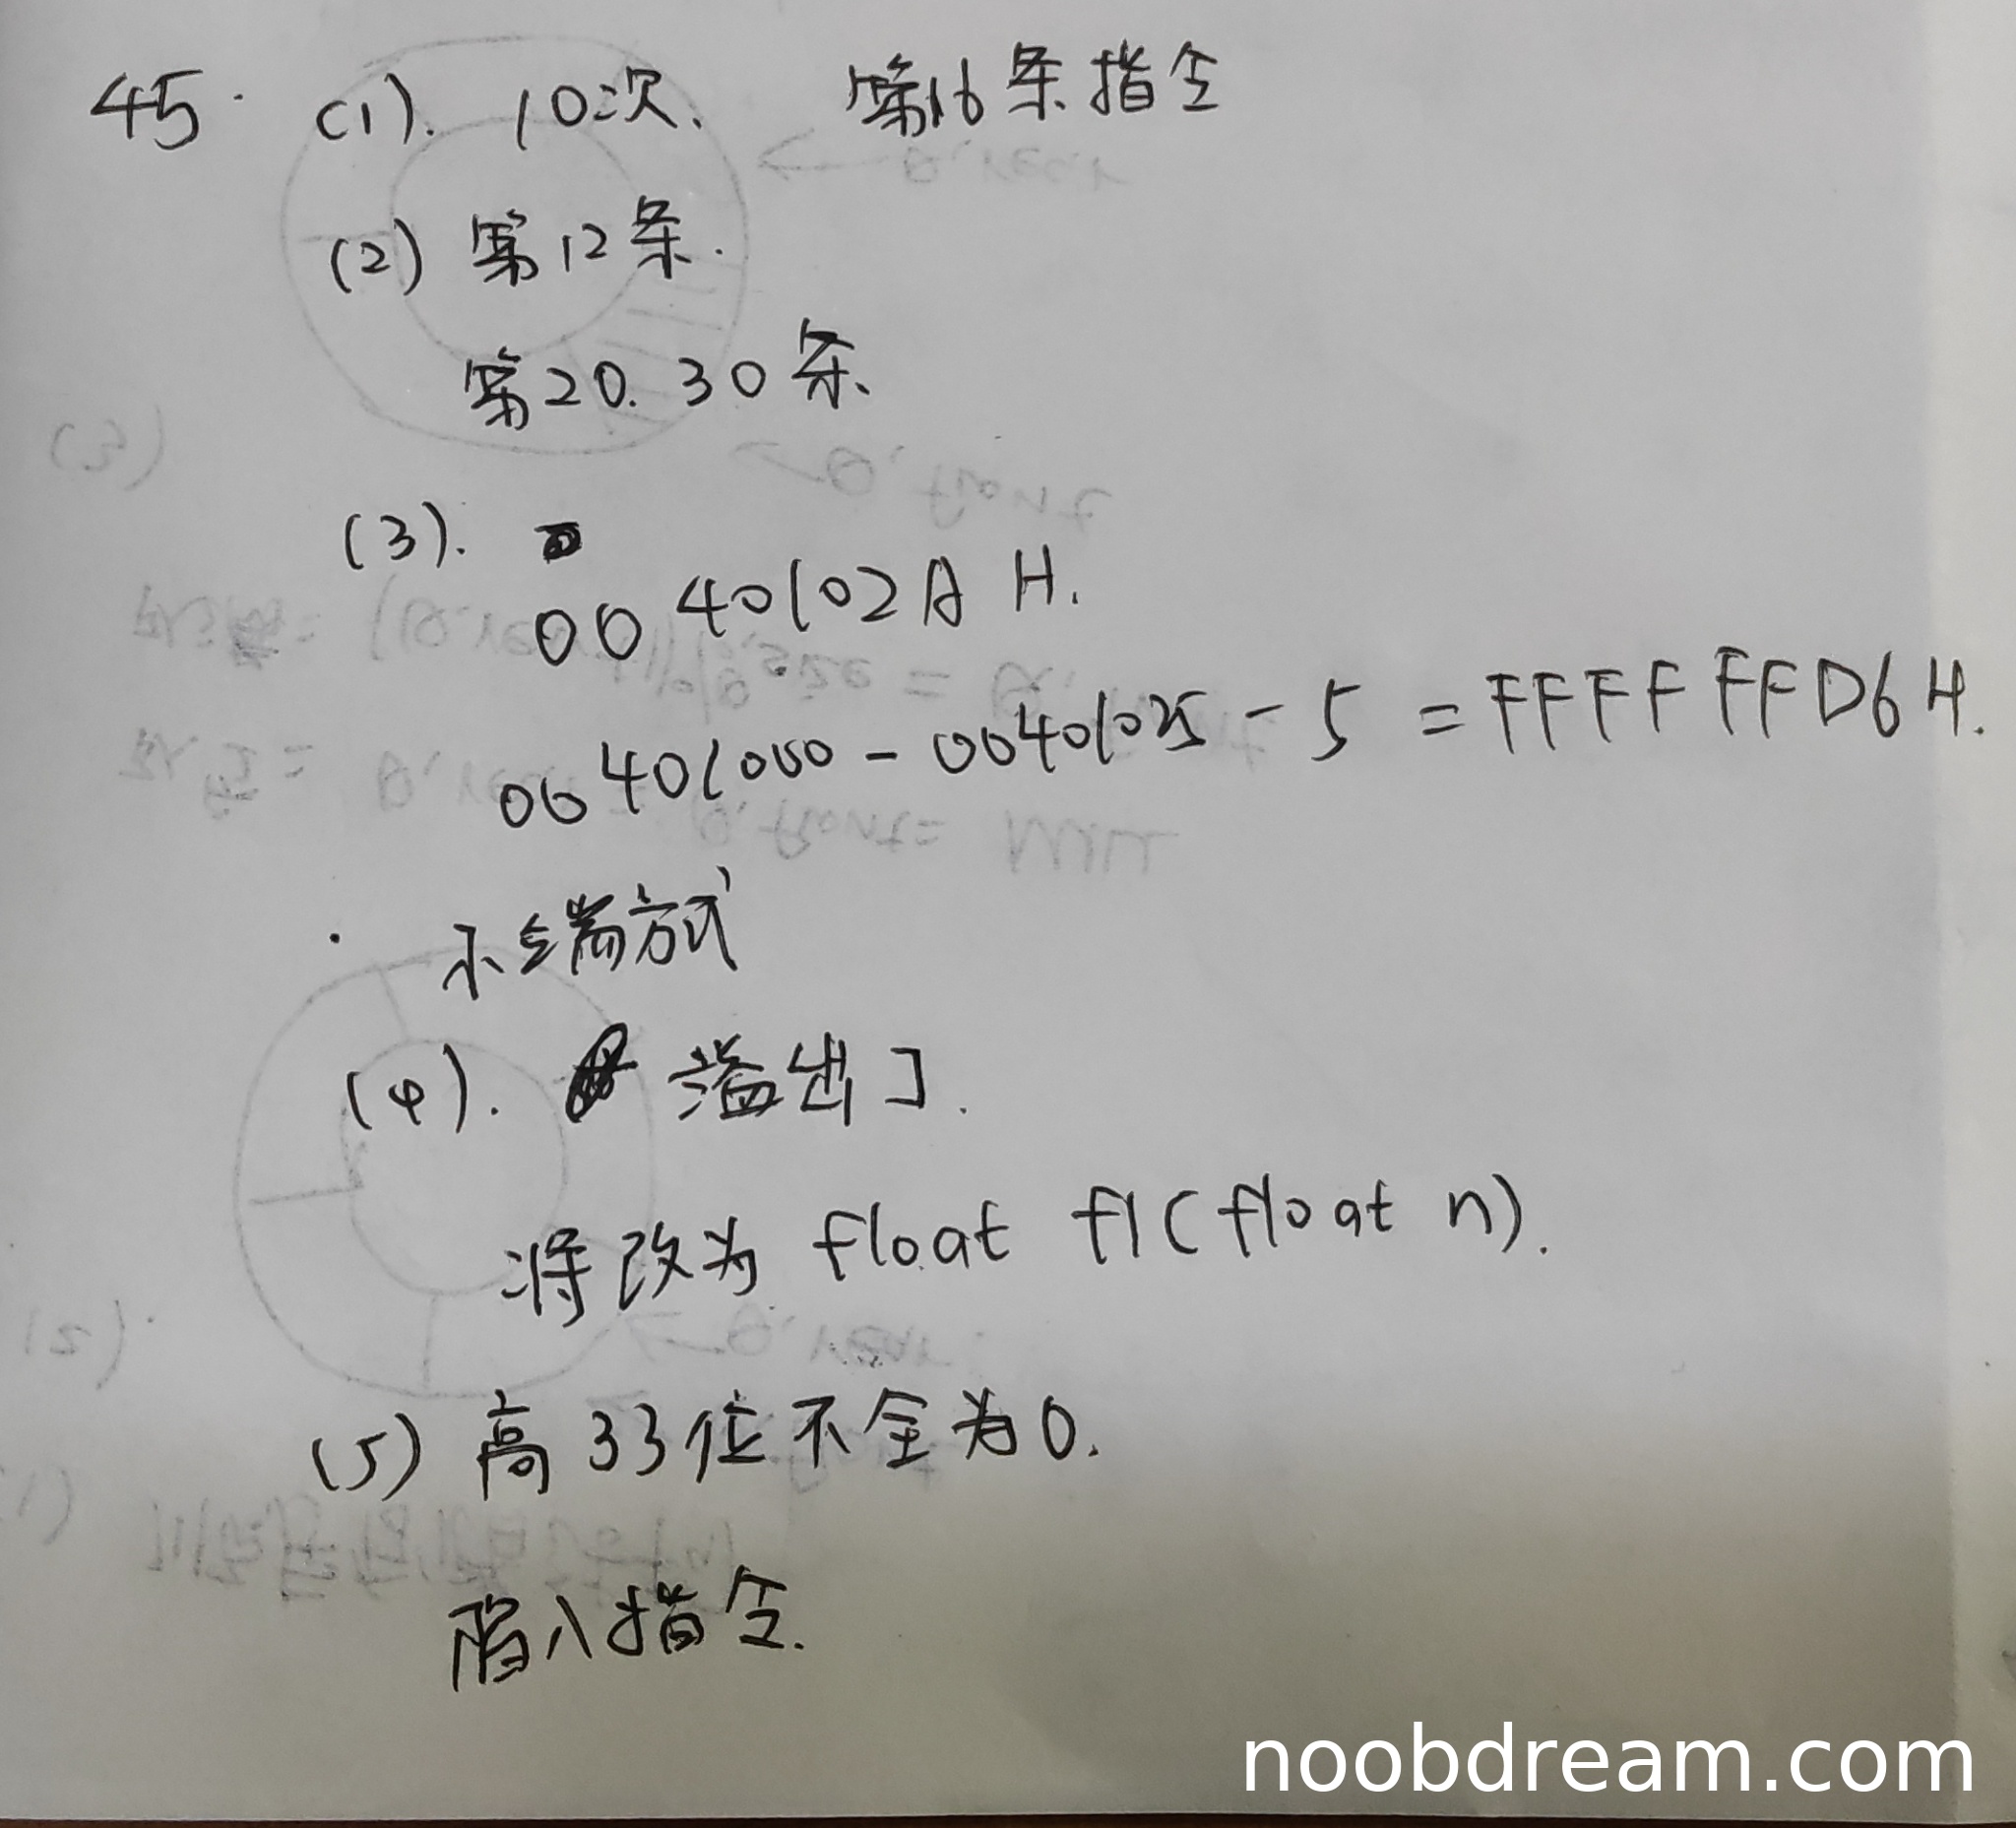 45. (1). 10次. 第16条指令
(2) 第12条.
第20. 30条.
(3).
0040102A H.
00401000 - 00401025 - 5 = FFFF FFD6 H.
小端方式
(4). 溢出了.
将改为 float f1(float n).
(5) 高33位不全为0.
陷入指令.
noobdream.com